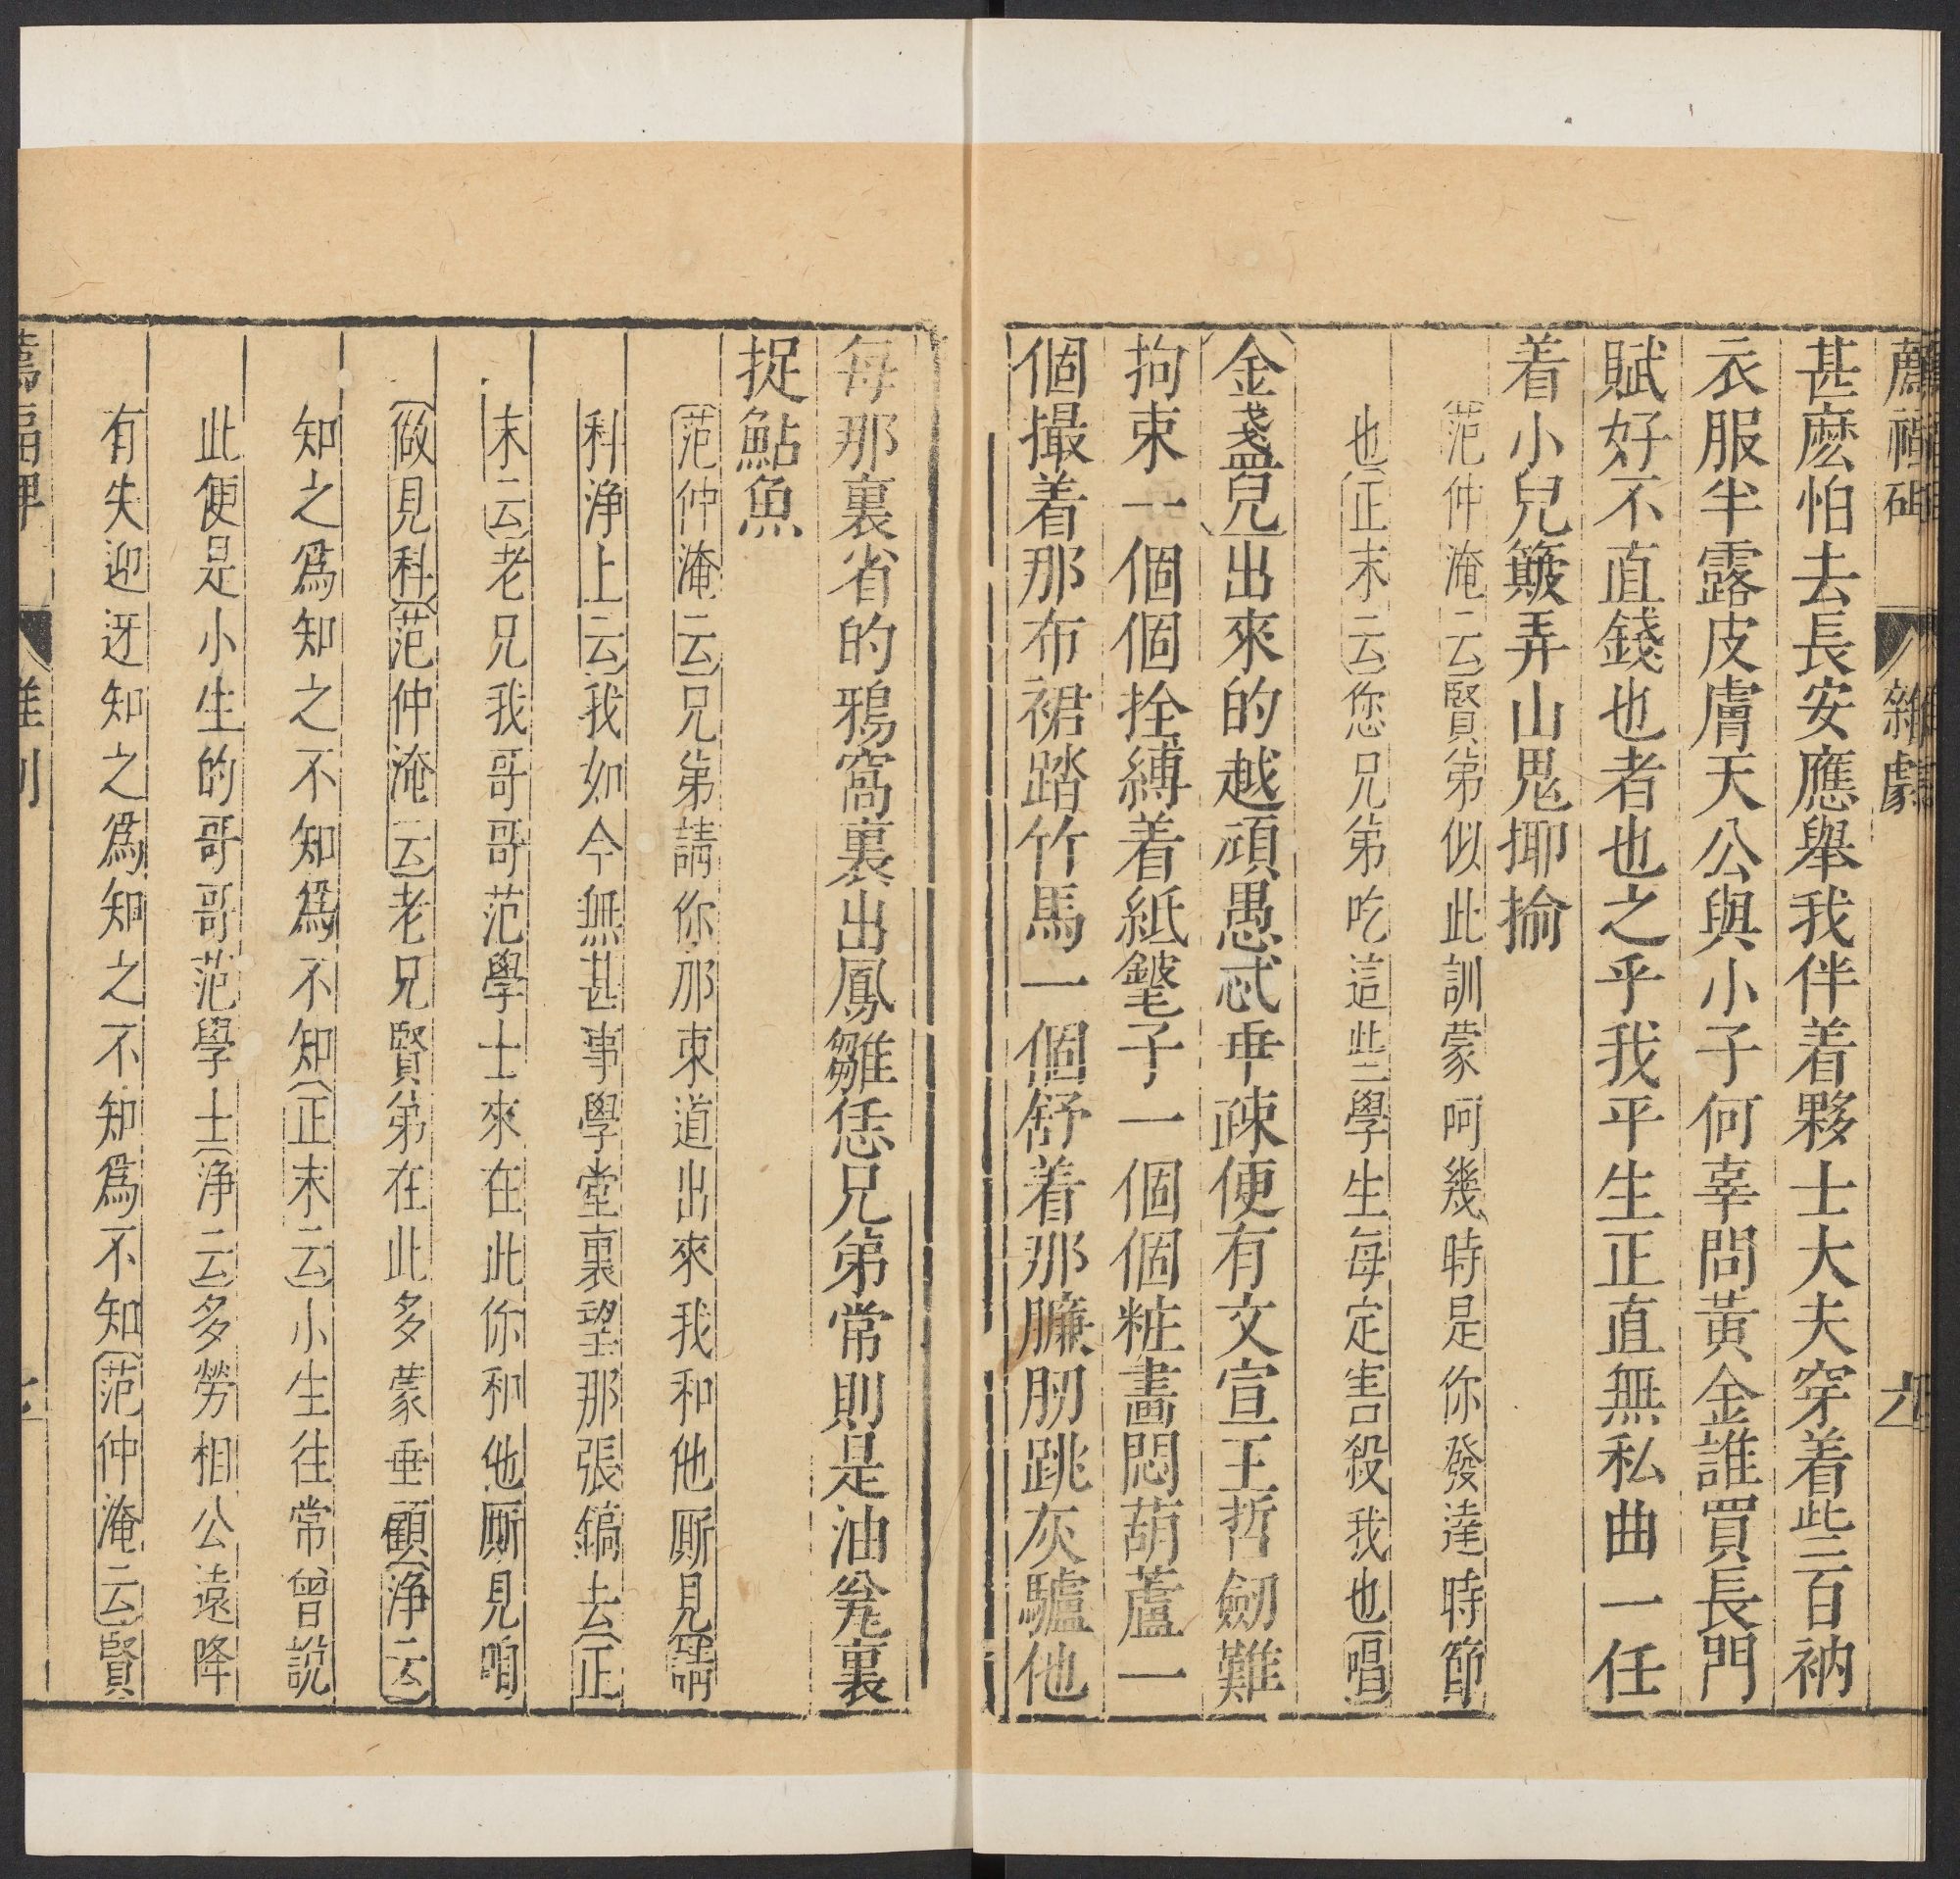 薦福碑 雜劇 九
甚麽怕去長安應舉我伴着夥士大夫穿着些百衲
衣服半露皮膚天公與小子何辜問黃金誰買長門
賦好不直錢也者也之乎我平生正直無私曲一任
着小兒簸弄山鬼揶揄
范仲淹云賢弟似此訓蒙呵幾時是你發達時節
也正末云您兄弟吃這些學生每定害殺我也唱
金盞兒出來的越頑愚忒乖疎便有文宣王哲劒難
拘束一個個拴縛着紙䥽子一個個粧畵悶葫蘆一
個撮着那布裙踏竹馬一個舒着那臁肕跳灰驢他
每那裏省的鴉窩裏出鳳雛恁兄弟常則是油瓮裏
捉鮎魚
范仲淹云兄弟請你那東道出來我和他厮見請
科淨上云我如今無甚事學堂裏望那張鎬去正
末云老兄我哥哥范學士來在此你和他厮見咱
做見科范仲淹云老兄賢弟在此多蒙垂顧淨云
知之爲知之不知爲不知正末云小生往常曾說
此便是小生的哥哥范學士淨云多勞相公遠降
有失迎迓知之爲知之不知爲不知范仲淹云賢